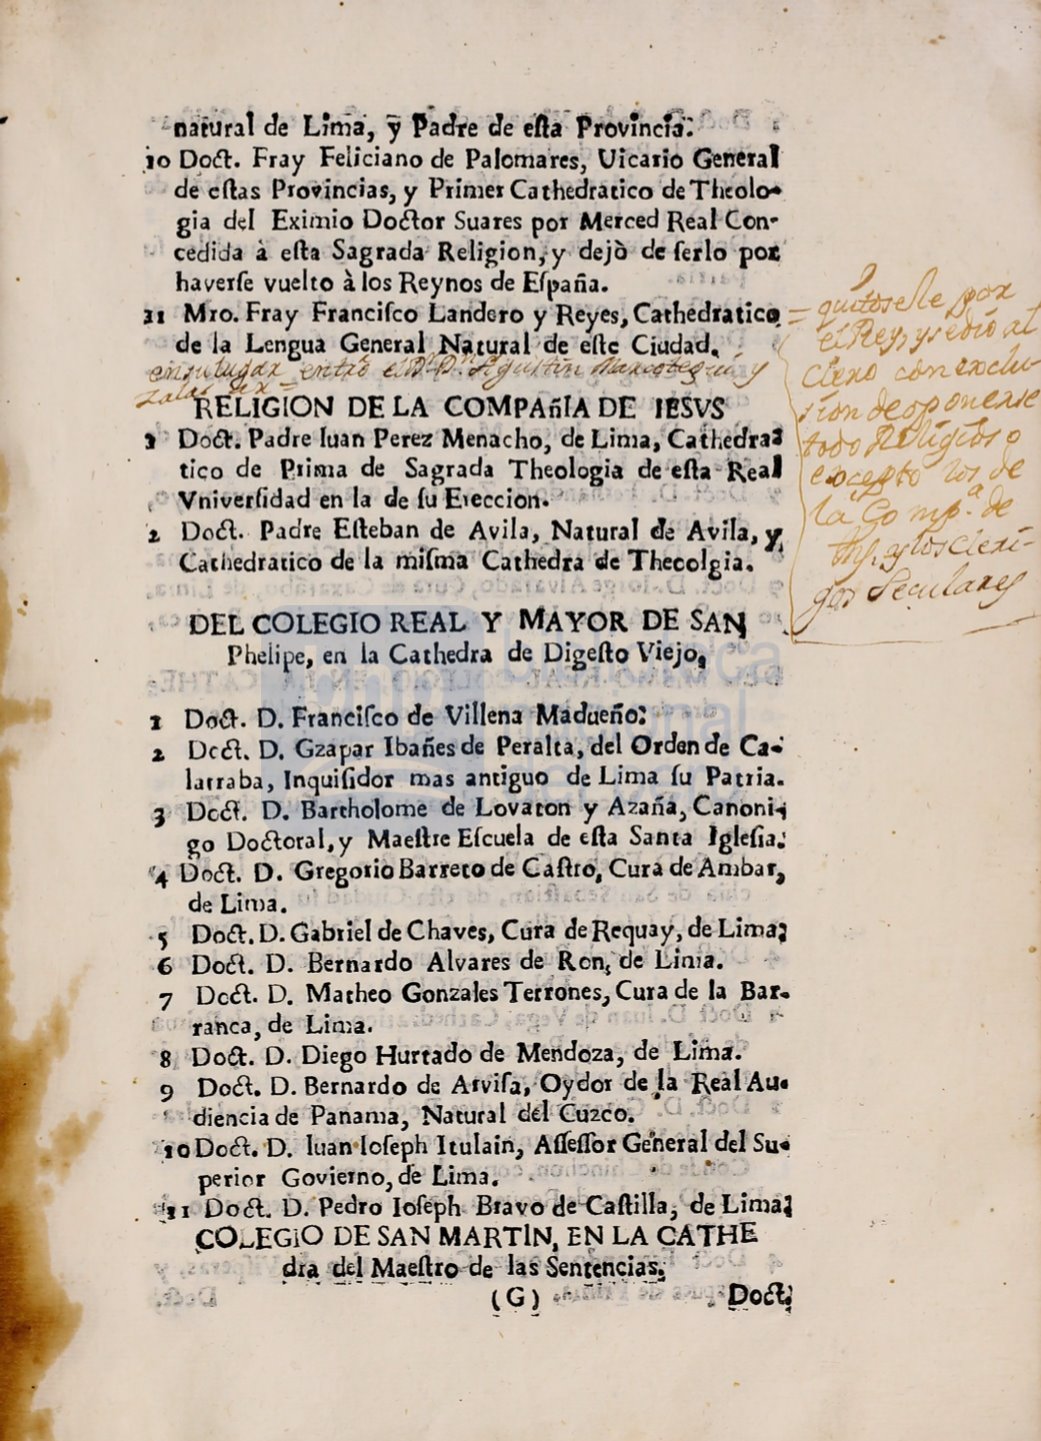 natural de Lima, y Padre de eſta Provincia.
10 Doct. Fray Feliciano de Palomares, Uicario General
de eſtas Provincias, y Primer Cathedratico de Theolo-
gia del Eximio Doctor Suares por Merced Real Con-
cedida à eſta Sagrada Religion, y dejò de ſerlo por
haverſe vuelto à los Reynos de Eſpaña.
11 Mro. Fray Franciſco Landero y Reyes, Cathedratico
de la Lengua General Natural de eſte Ciudad.
en su lugar entrò el P. Agustin y
RELIGION DE LA COMPAñIA DE IESVS
1 Doct. Padre Iuan Perez Menacho, de Lima, Cathedra-
tico de Prima de Sagrada Theologia de eſta Real
Vniverſidad en la de ſu Ereccion.
2 Doct. Padre Eſteban de Avila, Natural de Avila, y
Cathedratico de la miſma Cathedra de Thecolgia.
= quitosele por
el Rey, y se dio al
Clero con exclu-
sion de oponerse
todo Religioso
excepto los de
la Comp.ª de
Ihs, y los Cleri-
gos Seculares
DEL COLEGIO REAL Y MAYOR DE SAN
Phelipe, en la Cathedra de Digeſto Viejo,
1 Doct. D. Franciſco de Villena Madueño:
2 Doct. D. Gzapar Ibañes de Peralta, del Orden de Ca-
latraba, Inquiſidor mas antiguo de Lima ſu Patria.
3 Doct. D. Bartholome de Lovaton y Azaña, Canoni-
go Doctoral, y Maeſtre Eſcuela de eſta Santa Igleſia.
4 Doct. D. Gregorio Barreto de Caſtro, Cura de Ambar,
de Lima.
5 Doct. D. Gabriel de Chaves, Cura de Requay, de Lima;
6 Doct. D. Bernardo Alvares de Ron, de Lima.
7 Doct. D. Matheo Gonzales Terrones, Cura de la Bar-
ranca, de Lima.
8 Doct. D. Diego Hurtado de Mendoza, de Lima.
9 Doct. D. Bernardo de Arviſa, Oydor de la Real Au-
diencia de Panama, Natural del Cuzco.
10 Doct. D. Iuan Ioſeph Itulain, Aſſeſſor General del Su-
perior Govierno, de Lima.
11 Doct. D. Pedro Ioſeph Bravo de Caſtilla, de Lima;
COLEGIO DE SAN MARTIN, EN LA CATHE
dra del Maeſtro de las Sentencias.
(G) Doct.